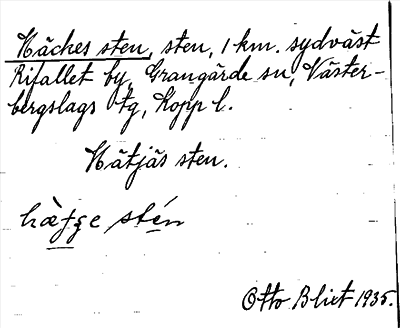 Häches sten, sten, 1 km. sydväst
Rifallet by, Grangärde sn, Väster-
bergslags tg, Kopp l.
Hätjäs sten.
sten
Otto Blixt 1935.